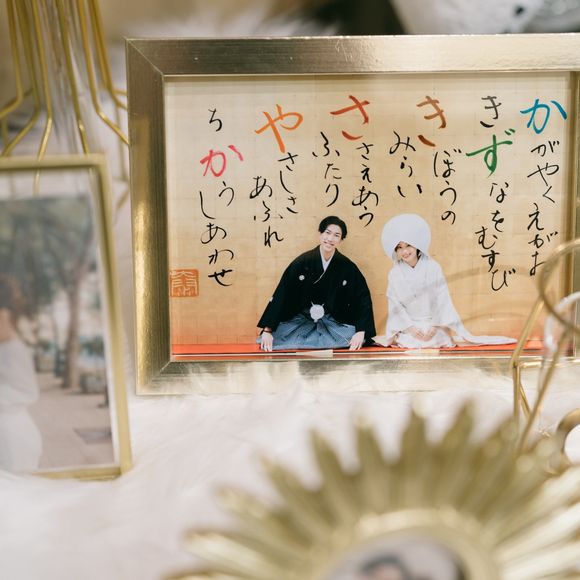 かがやくえがお
きずなをむすび
きぼうの
みらい
ささえあう
ふたり
やさしさ
あふれ
ちかう
しあわせ